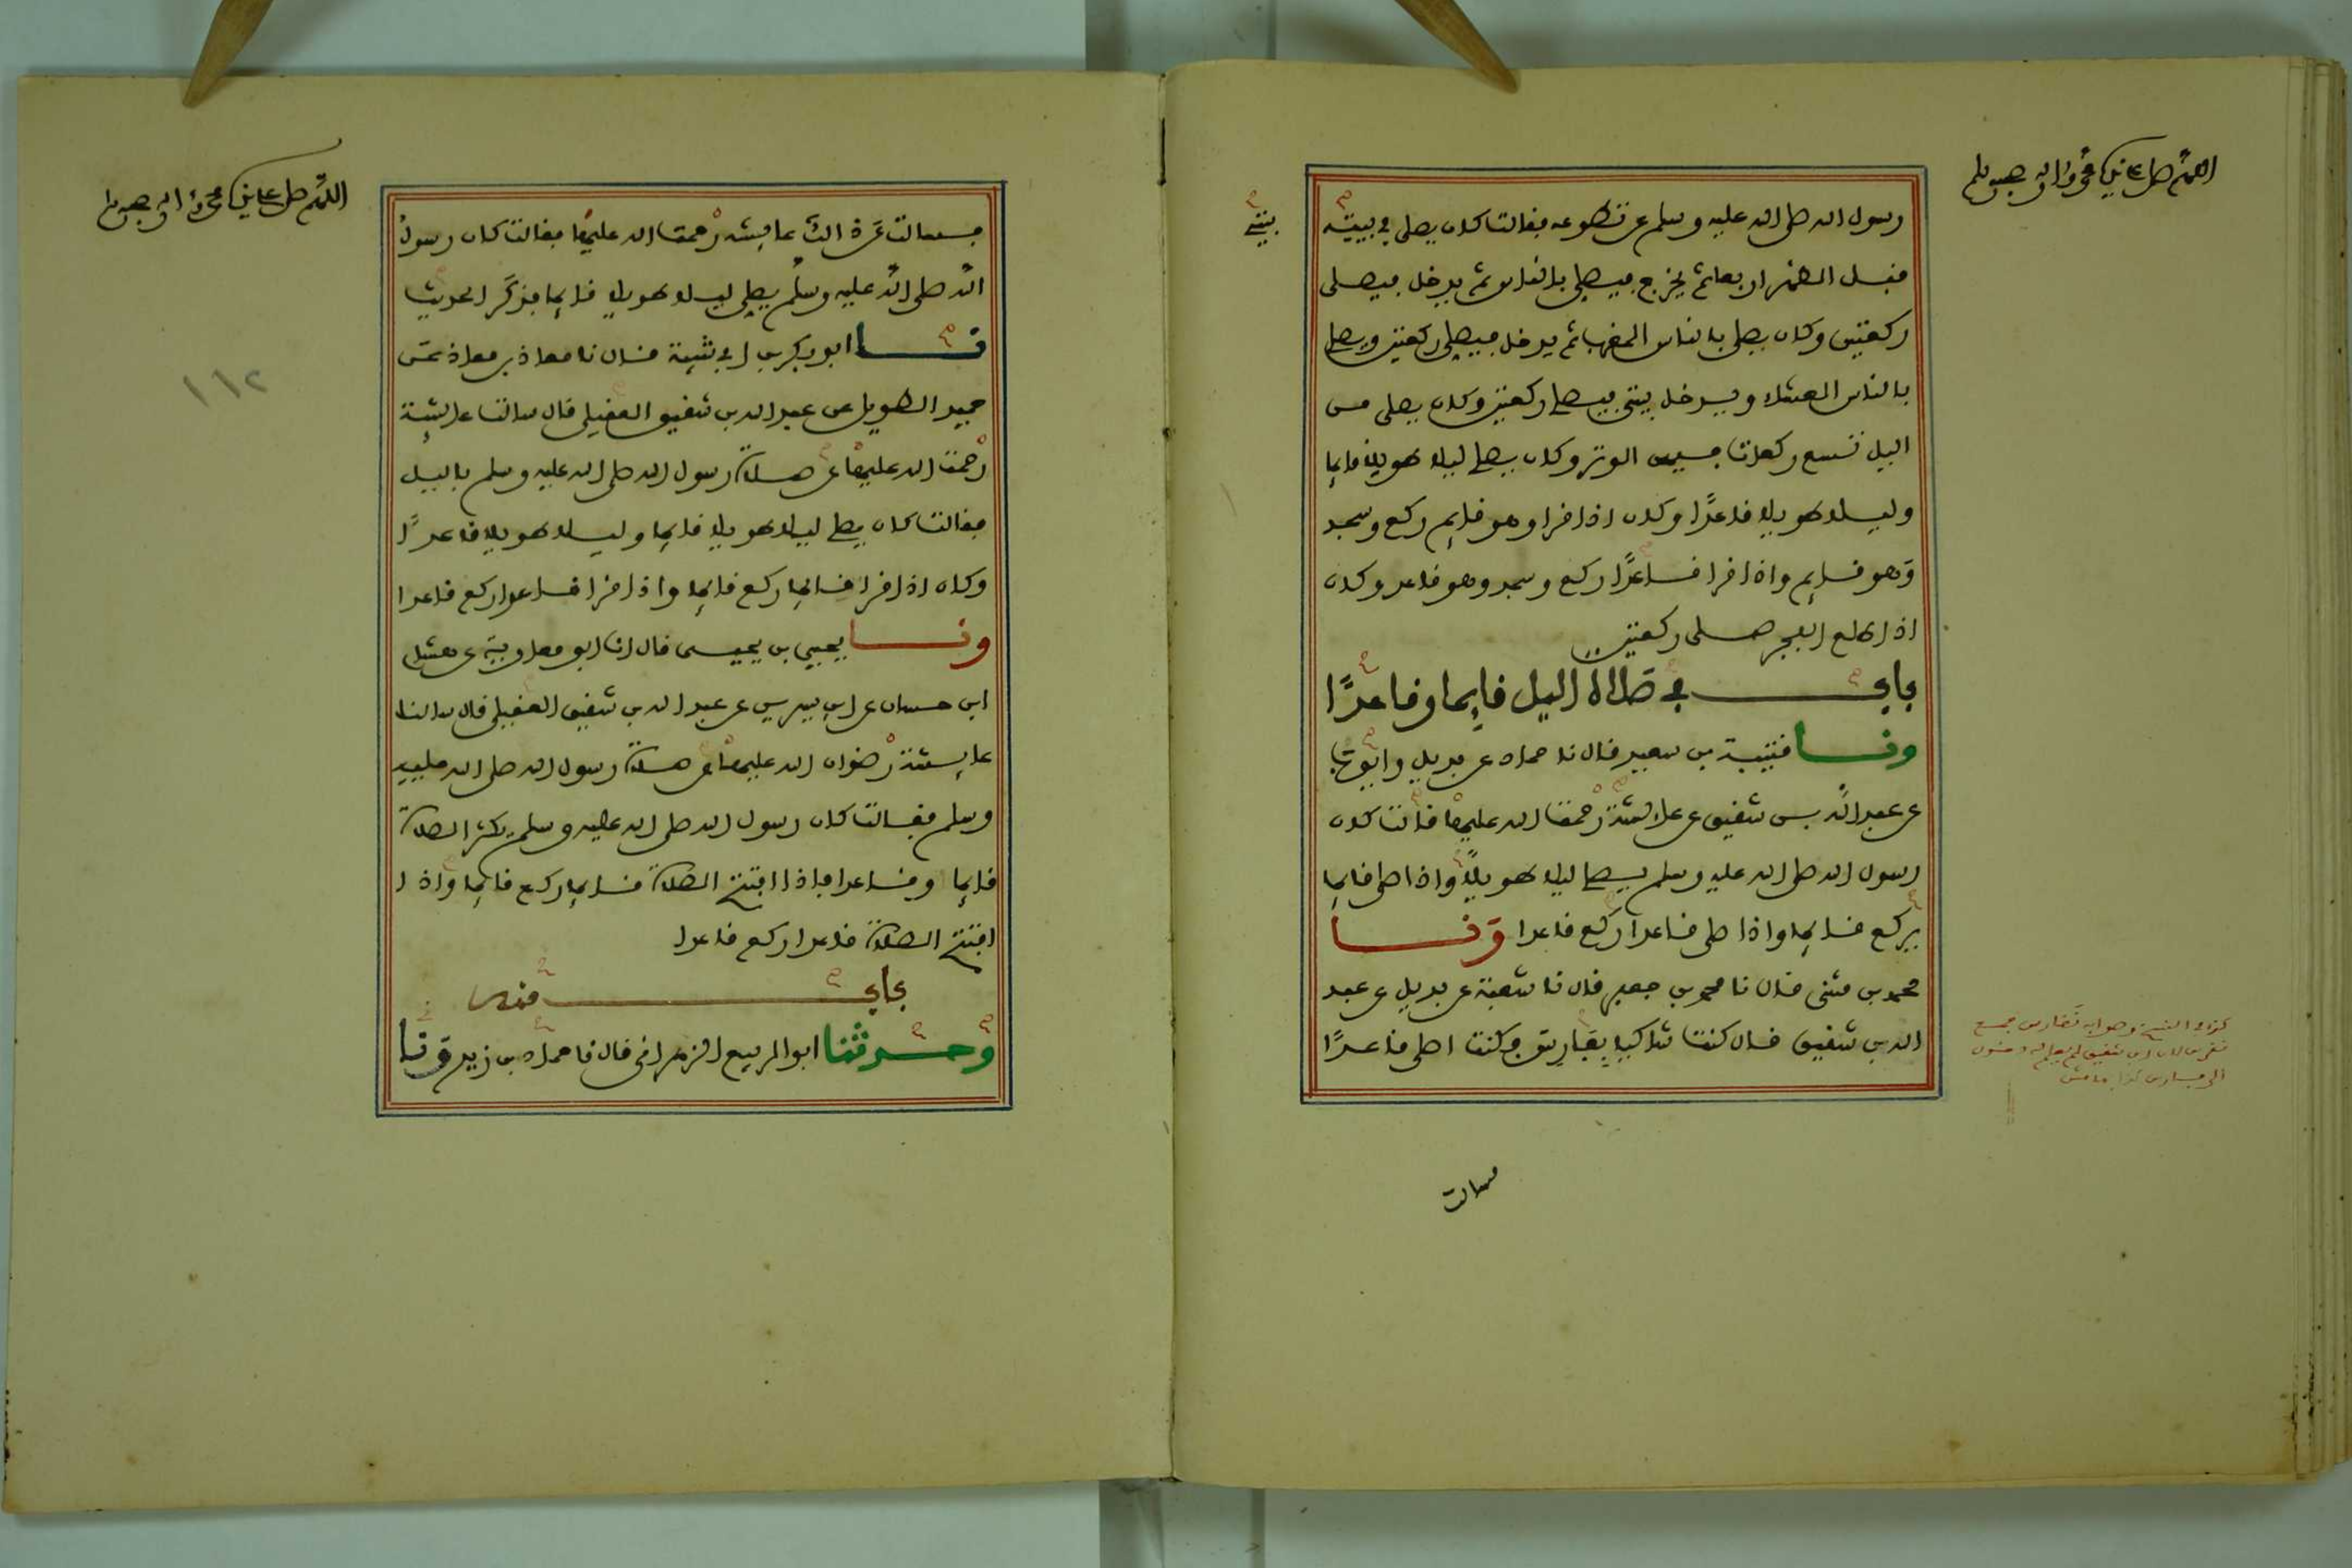 اللهم صل على نبيك محمد واله وصحبه وسلم
رسول الله صلى الله عليه وسلم عن تطوعه فقالت كان يصلي في بيته
بيتي
قبل الظهر اربعا ثم يخرج فيصلي بالناس ثم يدخل فيصلي
ركعتين وكان يصلي بالناس المغرب ثم يدخل فيصلي ركعتين ويصلي
بالناس العشاء ويدخل بيتي فيصلي ركعتين وكان يصلي من
اليل تسع ركعات فيهن الوتر وكان يصلي ليلا طويلا قايما
وليلا طويلا قاعدًا وكان اذا قرا وهو قايم ركع وسجد
وَهو قايم واذا قرا قاعدًا ركع وسجد وهو قاعد وكان
اذا طلع الفجر صلى ركعتين
باب في صَلاة اليل قايما وقاعدًا
ونا قتيبة بن سعيد قال نا حماد عن بديل وايوب
عن عبد الله بن شقيق عن عايشة رحمت الله عليها قالت كان
رسول الله صلى الله عليه وسلم يصلي ليلا طويلاً واذا صلى قايما
ركع قايما واذا صلى قاعدا ركع قاعدا وَنا
محمد بن مثنى قال نا محمد بن جعفر قال نا شعبة عن بديل عن عبد
الله بن شقيق قال كنت شاكيا بفارس فكنت اصلي قاعدًا
كذا في النسخ وصوابه نقارس جمع
نقرس لان ابن شقيق لم
سالت
اللهم صل على نبيك محمد واله وصحبه وسلم
فسالت عَن ذالك عايشة رحمت الله عليها فقالت كان رسول
الله صلى الله عليه وسلم يصلي ليلا طويلا قايما فذكَر الحديث
نا ابو بكر بن ابي شيبة قال نا معاذ بن معاذ عَن
١١٢
حميد الطويل عن عبد الله بن شقيق العقيلي قال سالت عايشة
رحمت الله عليها عن صلاة رسول الله صلى الله عليه وسلم باليل
فقالت كان يصلي ليلا طويلا قايما وليلا طويلا قاعدًا
وكان اذا قرا قايما ركع قايما واذا قرا قاعدا ركع قاعدا
ونا يحيى بن يحيى قال انا ابو معاوية عن هشام
ابن حسان عن ابن سيرين عن عبد الله بن شقيق العقيلي قال سالنا
عايشة رضوان الله عليها عن صلاة رسول الله صلى الله عليه
وسلم فقالت كان رسول الله صلى الله عليه وسلم يكثر الصلاة
قايما وقاعدا فاذا افتتح الصَلاة قايما ركع قايما واذا
افتتح الصلاة قاعدا ركع قاعدا
باب منه
وحدثنا ابو الربيع الزهراني قال نا حماد بن زيد وَنا